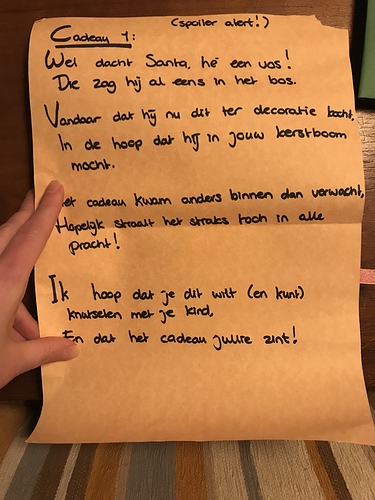 (spoiler alert!)
Cadeau 1:
Wel dacht Santa, hé een vos!
Die zag hij al eens in het bos.
Vandaar dat hij nu dit ter decoratie kocht,
In de hoop dat hij in jouw kerstboom
mocht.
Het cadeau kwam anders binnen dan verwacht,
Hopelijk straalt het straks toch in alle
pracht!
Ik hoop dat je dit wilt (en kunt)
knutselen met je kind,
En dat het cadeau jullie zint!